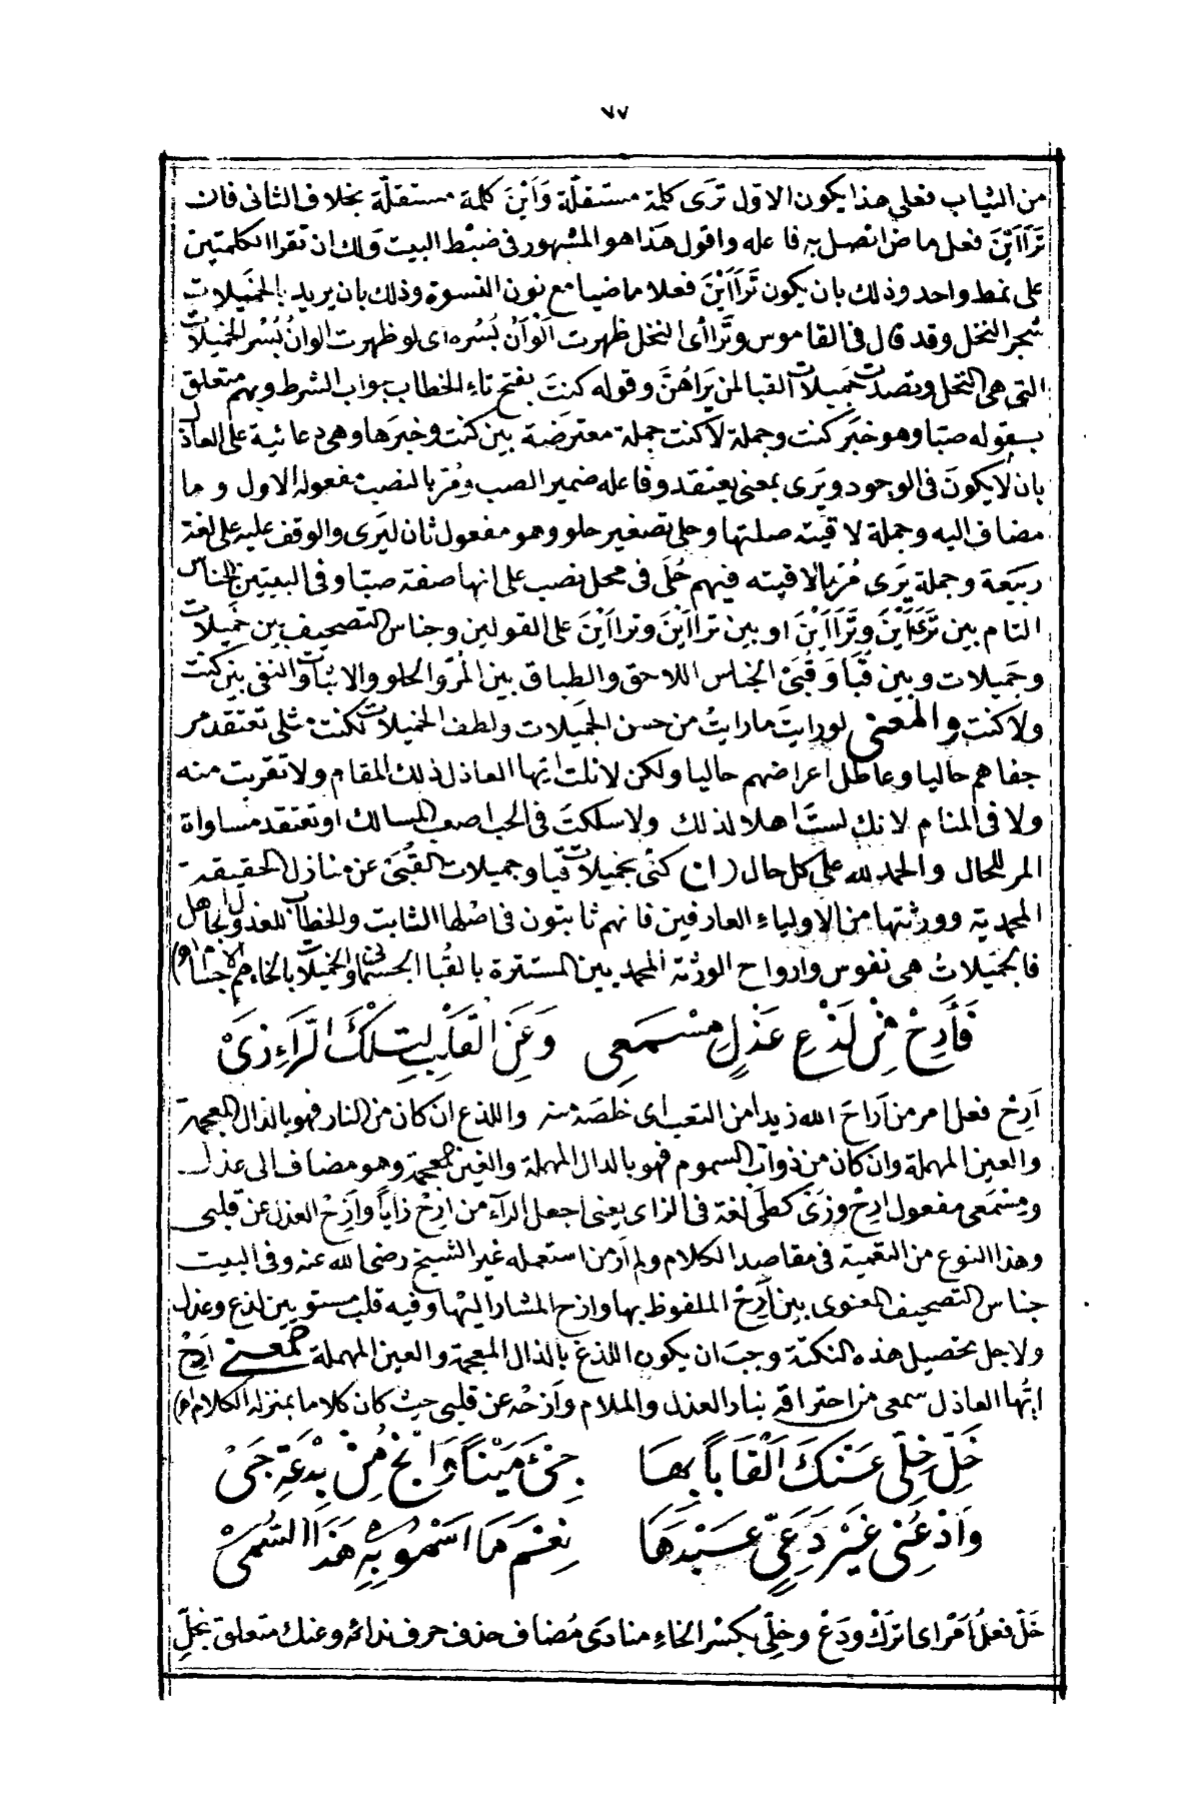 ٧٧
من الثياب فعلى هذا يكون الاول تَرَى كلمة مستقلّة وَاَيْنَ كلمة مستقلّة بخلاف الثانى فان
تَرَاَايْنَ فعل ماض اتصل به فاعله واقول هَذا هو المشهور فى ضبْط البيت وَلك ان تقرا الكلمتين
على نمط واحد وذلك بان يكون تَرَاَايْنَ فعلا ماضيا مع نون النسوة وذلك بان يريد بالخَميلات
شجر النخل وقد قال فى القاموس وتَراأى النخل ظهرت اَلْوَانُ بُسْره اى لو ظهرت الوانُ بُسْر الخميلات
التى هى النخل وتصدت جَميلات القبا لمن يَراهُنَّ وقوله كنتَ بفتح تاء الخطاب جواب الشرط وبهم متعلق
بقوله صبّا وهو خبَر كنت وجملة لا كنت جملة معترضة بين كنت وخبرَها وهى دعائية على العاذل
بان لا يكونَ فى الوجود ويَرى بمعنى يعتقد وفاعله ضمير الصب ومُرّ بالنصب مفعوله الاول وما
مضاف اليه وجملة لاقيته صلتها وحلى تصغير حلو وهو مفعول ثان ليَرى والوقف عليه على لغة
ربيَعة وجملة يَرى مُرّ ما لاقيته فيهم حُلَى فى محل نصب على انها صفة صبّا وفى البيتين الجناس
التام بين تَرَىَاَيْنَ وتَرَاَايْنَ او بين تراايْنَ وتراايْنَ على القولين وجناس التصحيف بين خَميلات
وجَميلات وبين قُبَا وَقُبَىْ الجناس اللاحق والطباق بين المُرّ والحلو والاثبات والنفى بين كنت
ولا كنت والمعنى لو رايتَ ما رايتُ من حسن الجَميلات ولطف الخميلات لكنت مثلى تعتقد مر
جفاهم حاليا وعاطل اعراضهم حاليا ولكن لا نلت ايّها العاذل ذلك المقام ولا تقربت منه
ولا فى المنام لانك لستَ اهلا لذلك ولا سلكتَ فى الحب اصعب المسالك او تعتقد مساواة
المر للحال والحمد لله على كل حال (ن) كنى بخميلات قبا وجميلات القُبَىْ عن منازل الحقيقة
المحمدية وورثتها من الاولياء العارفين فانهم ثابتون فى اصْلها الثابت والخطاب للعذول الجاهل
فالجَميلاتُ هى نفوس وارواح الورثة المحمديين المستترة بالقُبا الجسْمانى والخميلات بالخاء هم الاجسام اه)
فَأَرِحْ مِنْ لَذْعِ عَذْلٍ مِسْمَعِى وَعَنِ الْقَلْبِ لِتِلْكَ الرَّاءِ زَىْ
اَرِحْ فعل امر من اَراحَ الله زيدا من التعب اى خلصَه منه واللذع ان كان من النار فهو بالذال المعجمة
والعين المهملة وان كان من ذوات السموم فهو بالدال المهملة والغين المعجمة وهو مضاف الى عذل
ومِسْمَعى مفعول ارِحْ وزَىْ كطَىْ لغة فى الزاى يعنى اجعل الرآء من ارِحْ زاياً وَاَزِحْ العذل عن قلبى
وهذا النوع من التعمية فى مقاصد الكلام ولم اَر من استعمله غير الشيخ رضى الله عنه وفى البيت
جناس التصحيف المعنوى بين اَرِحْ الملفوظ بها وازح المشار اليْها وفيه قلب مستو بين لذع وعذل
ولاجل تحصيل هذه النكتة وجبَ ان يكون اللذع بالذال المعجمة والعين المهملة المعنى اَرِحْ
ايّها العاذل سمعى من احتراقه بنار العذل والملام وَاَزحْه عن قلبى حيث كان كلاما بمنزلة الكلام اه)
خَلِّ خِلِّى عَنْكَ اَلْقَاباً بِهَا جِىْءَ مَيْناً وَانْجُ مِنْ بِدْعَةِ جَىْ
وَادْعُنِى غَيْرَ دَعِىٍّ عَبْدَهَا نِعْمَ مَا اَسْمُو بِهِ هَذَا السُّمَىْ
خَلّ فعلُ اَمْر اى اترَكْ ودَعْ وخِلِّى بكسْر الخاء منادَى مُضاف حذف حرف ندائه وعنك متعلق بخلّ